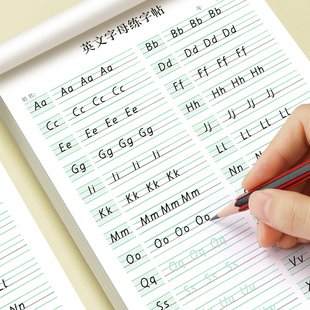 英文字母练字帖
姓名:
年
Aa Aa Aa Aa
Bb Bb Bb Bb Bb
Cc Cc Cc Cc Cc
Dd Dd Dd Dd Dd
Ee Ee Ee Ee
Ff Ff Ff Ff
Gg Gg Gg Gg
Hh Hh Hh Hh Hh
Ii Ii Ii Ii
Jj Jj Jj Jj
Kk Kk Kk Kk
LL LL LL LL
Mm Mm Mm Mm
Oo Oo Oo Oo
Qq Qq Qq Qq
Ss Ss Ss Ss
Vv
L
Nn